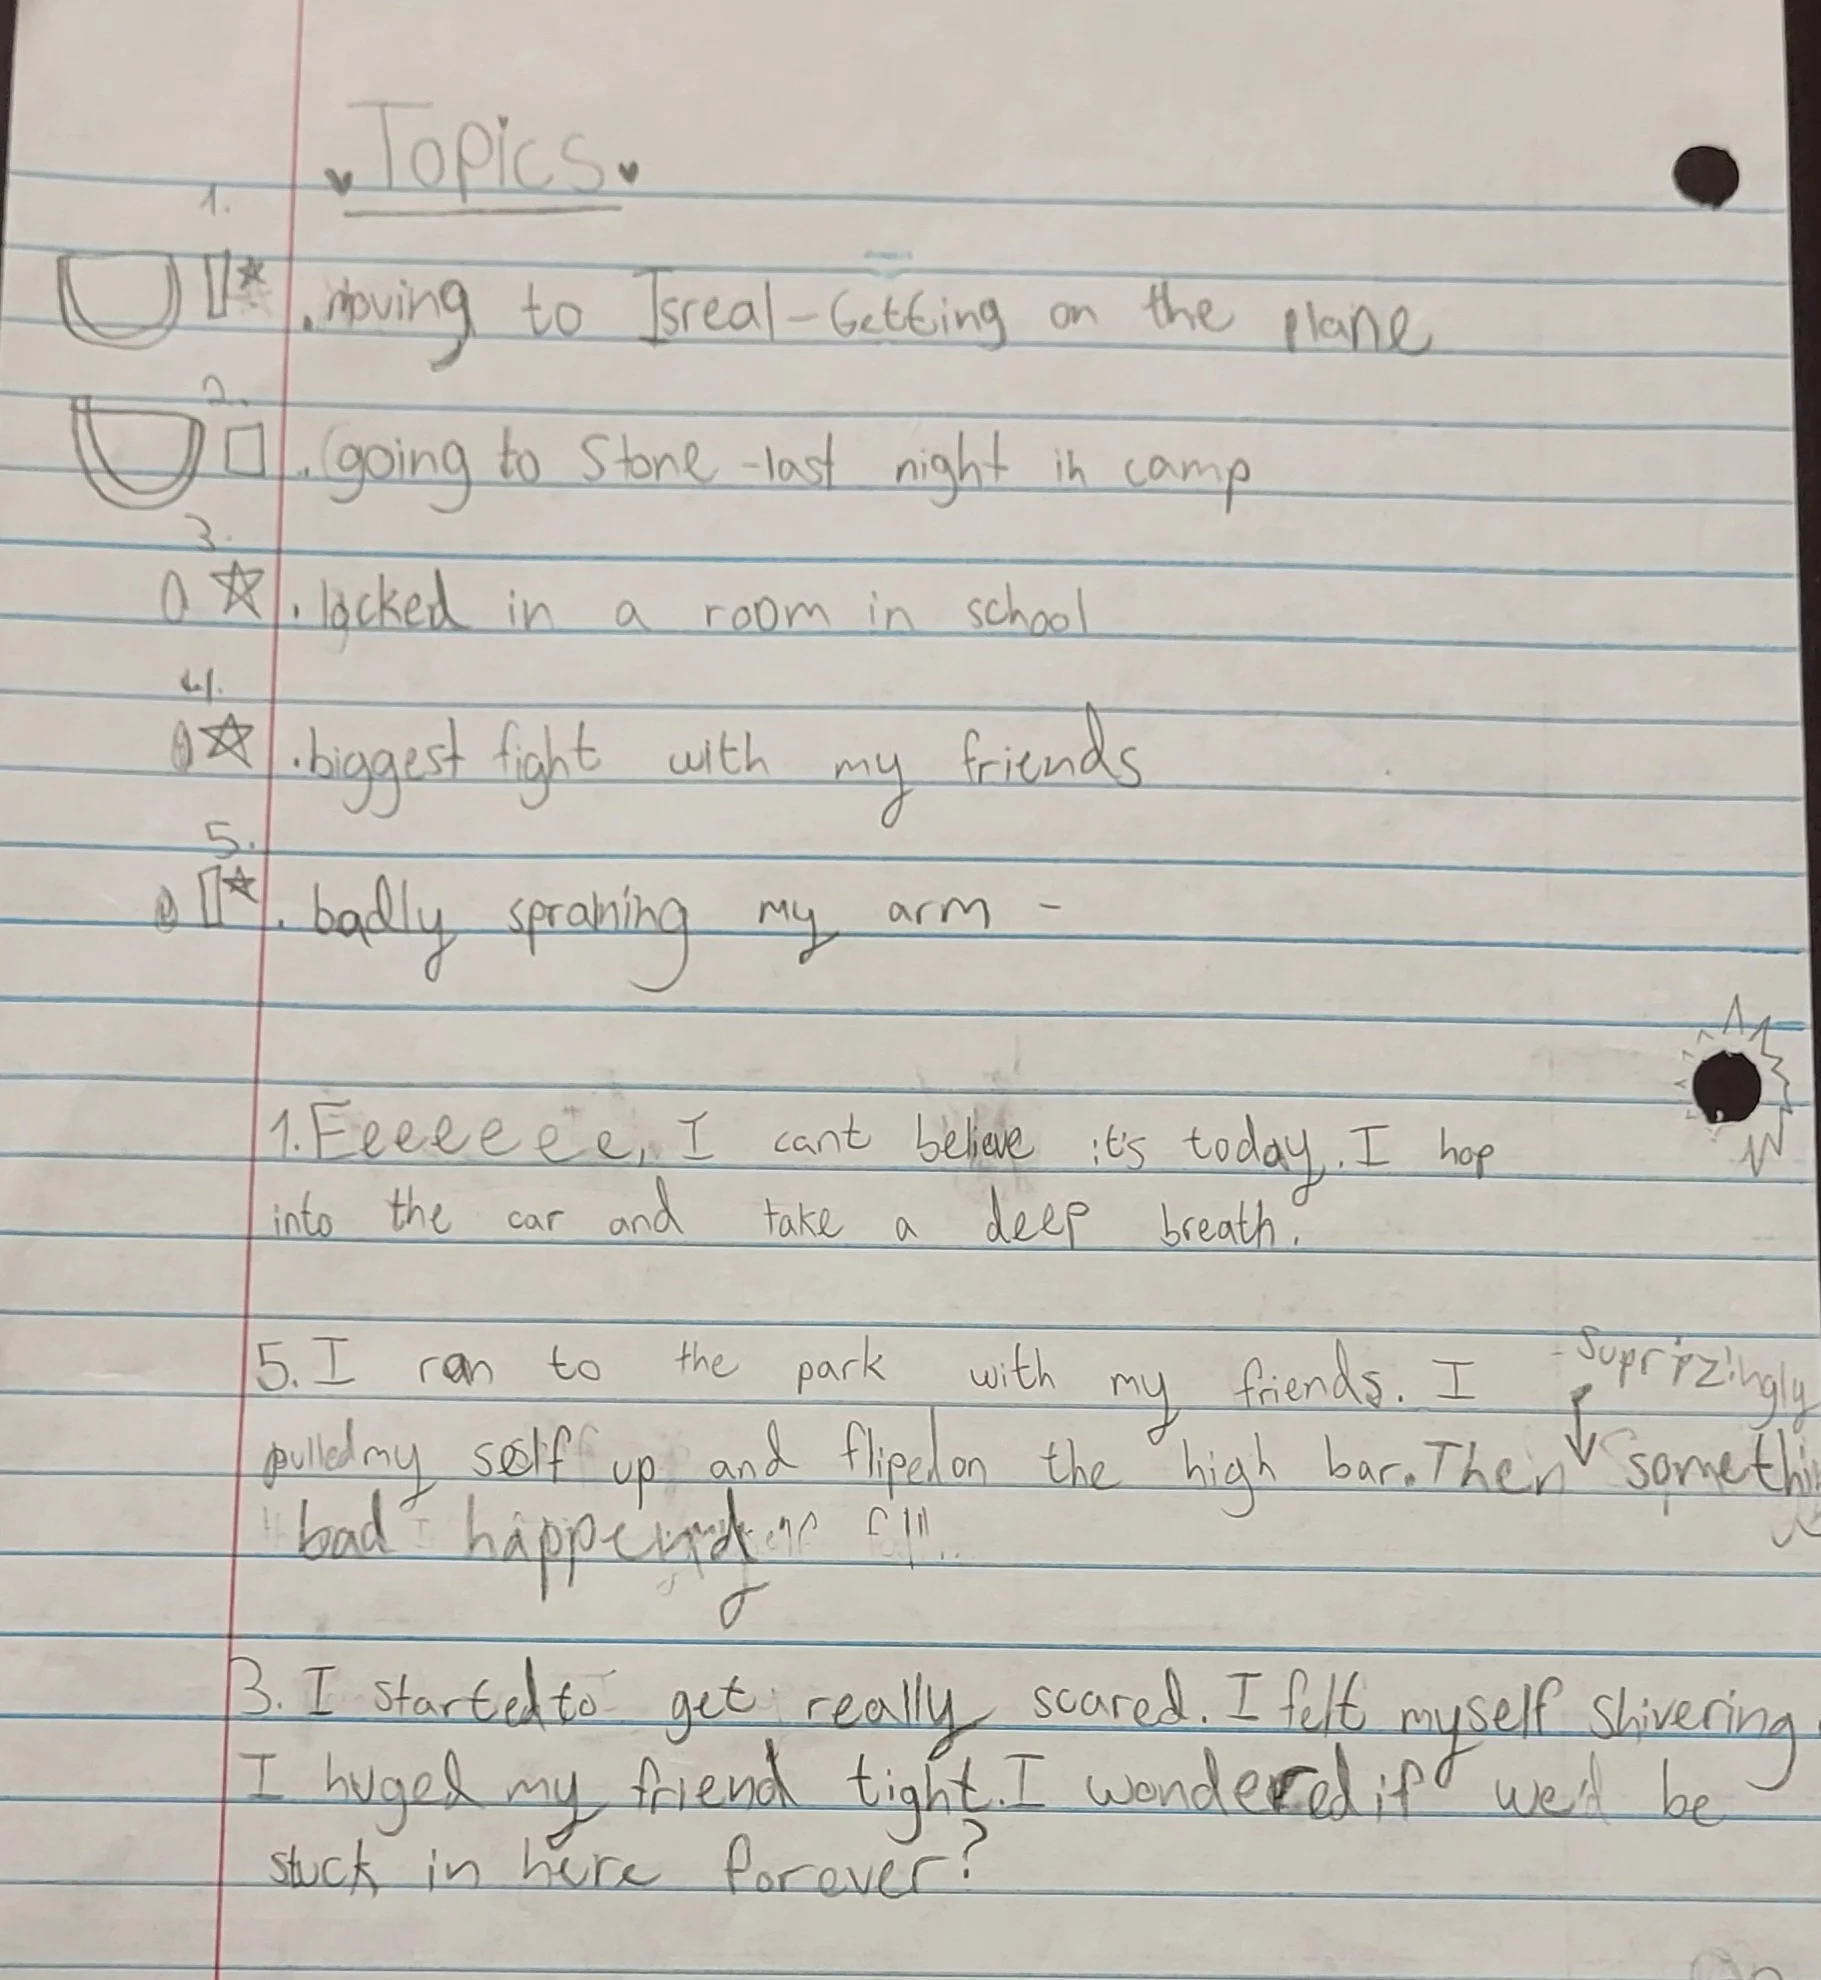 Topics
1.
. moving to Isreal - Getting on the plane
2.
. going to Stone - last night in camp
3.
. locked in a room in school
4.
. biggest fight with my friends
5.
. badly spraining my arm -
1. Eeeeeee, I cant believe it's today. I hop
into the car and take a deep breath.
5. I ran to the park with my friends. I
Suprizingly
pulled my self up and fliped on the high bar. Then somethi
bad happend
3. I started to get really scared. I felt myself shivering.
I huged my friend tight. I wondered if we'd be
stuck in here forever?